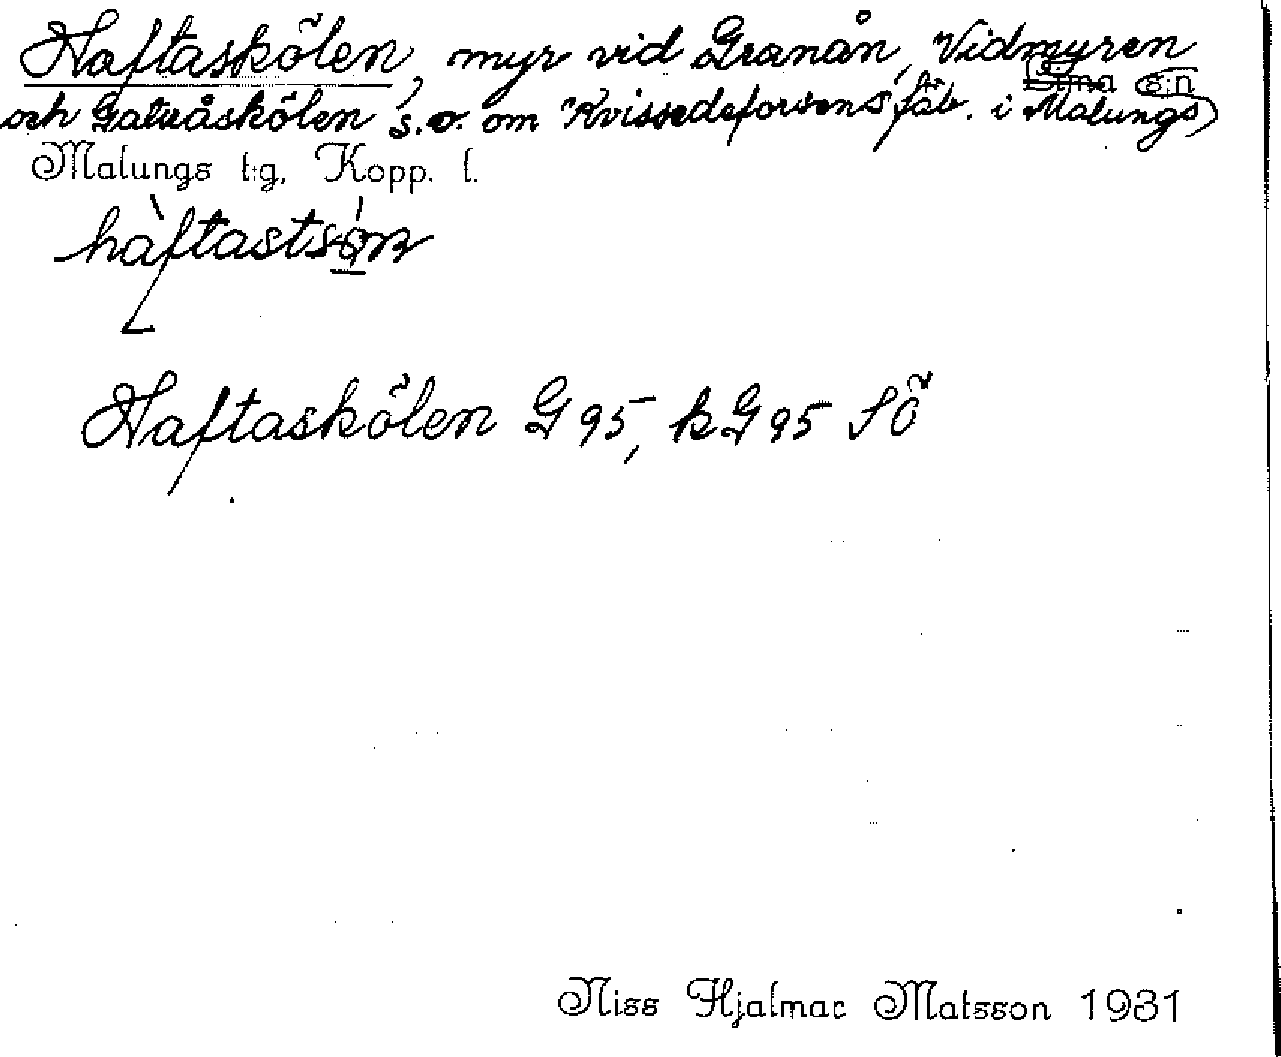 Haftaskölen, myr vid Granån, Vidmyren
s:n
och Gatuåskölen s.o. om Kvissedeforsens fäb. i Malungs
Malungs t:g, Kopp. l.
Haftaskölen G 95, kG 95 SÖ
Niss Hjalmar Matsson 1931